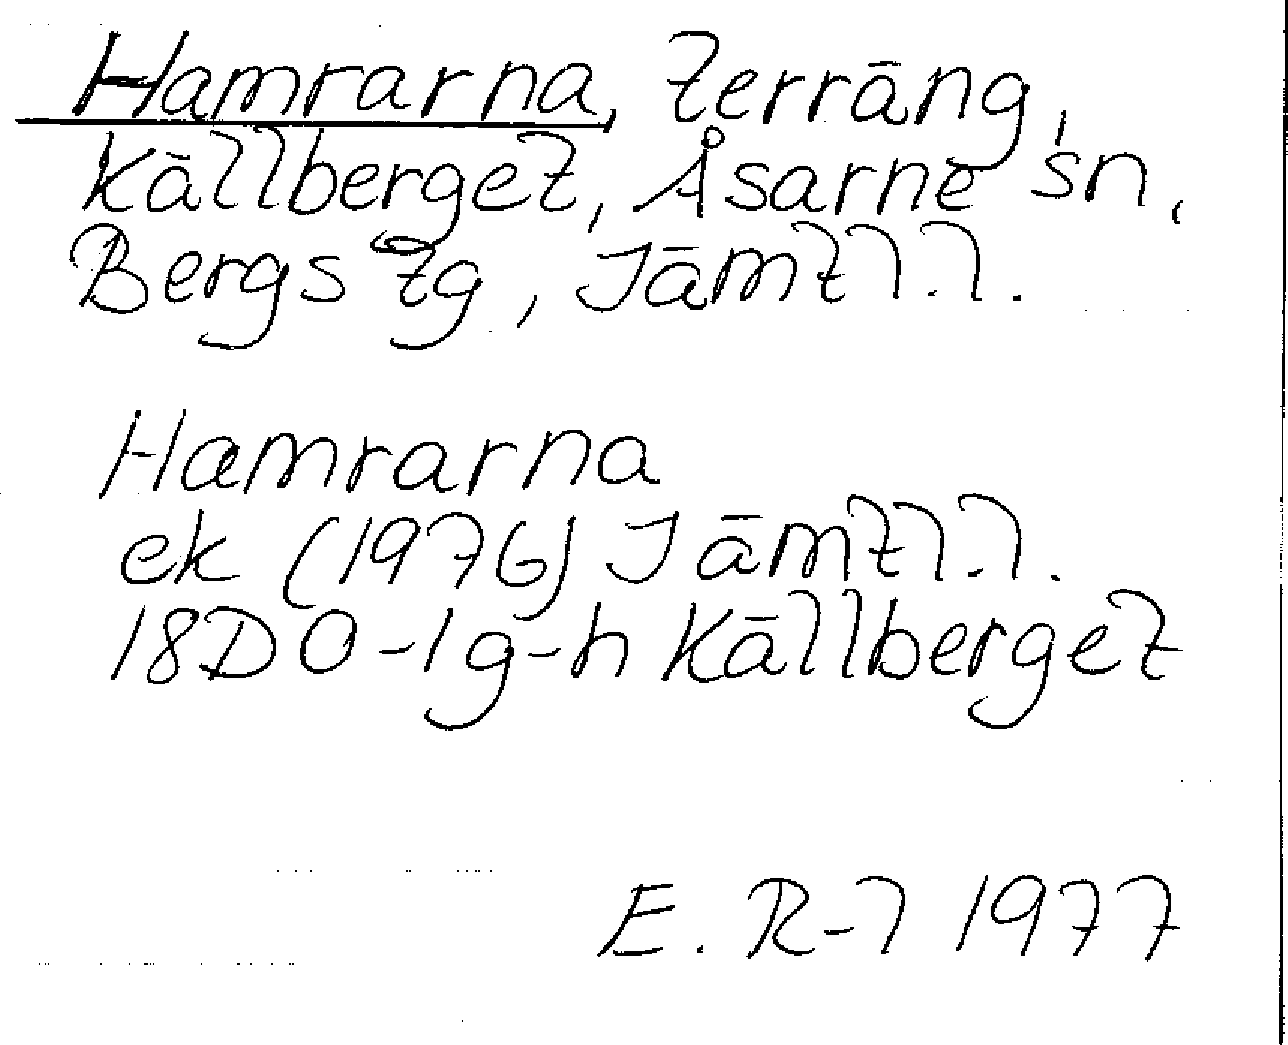 Hamrarna, terräng,
Källberget, Åsarne sn,
Bergs tg, Jämtl.l.
Hamrarna
ek (1976) Jämtl.l.
18D 0-1g-h Källberget
E. R-l 1977